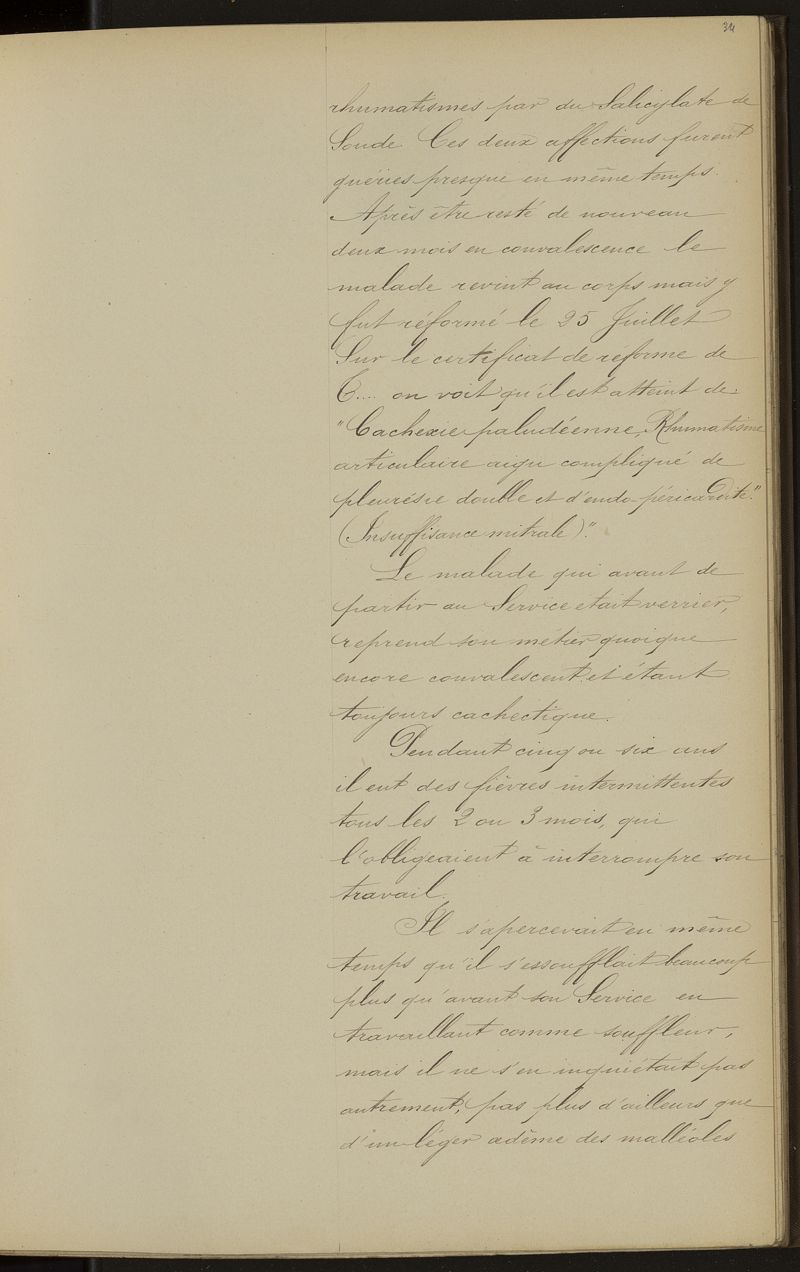 34
rhumatismes par du Salicylate de
Soude. Ces deux affections furent
guéries presque en même temps.
Après être resté de nouveau
deux mois en convalescence le
malade revint au corps mais y
fut réformé le 25 Juillet
Sur le certificat de réforme de
C.... on voit qu'il est atteint de
"Cachexie paludéenne, Rhumatisme
articulaire aigu compliqué de
pleurésie double et d'endo-péricardite."
(Insuffisance mitrale)".
Le malade qui avant de
partir au Service était verrier,
reprend son métier quoique
encore convalescent et étant
toujours cachectique.
Pendant cinq ou six ans
il eut des fièvres intermittentes
tous les 2 ou 3 mois, qui
l'obligeaient à interrompre son
travail.
Il s'apercevait en même
temps qu'il s'essoufflait beaucoup
plus qu'avant son Service en
travaillant comme souffleur,
mais il ne s'en inquiétait pas
autrement, pas plus d'ailleurs que
d'un léger œdème des malléoles